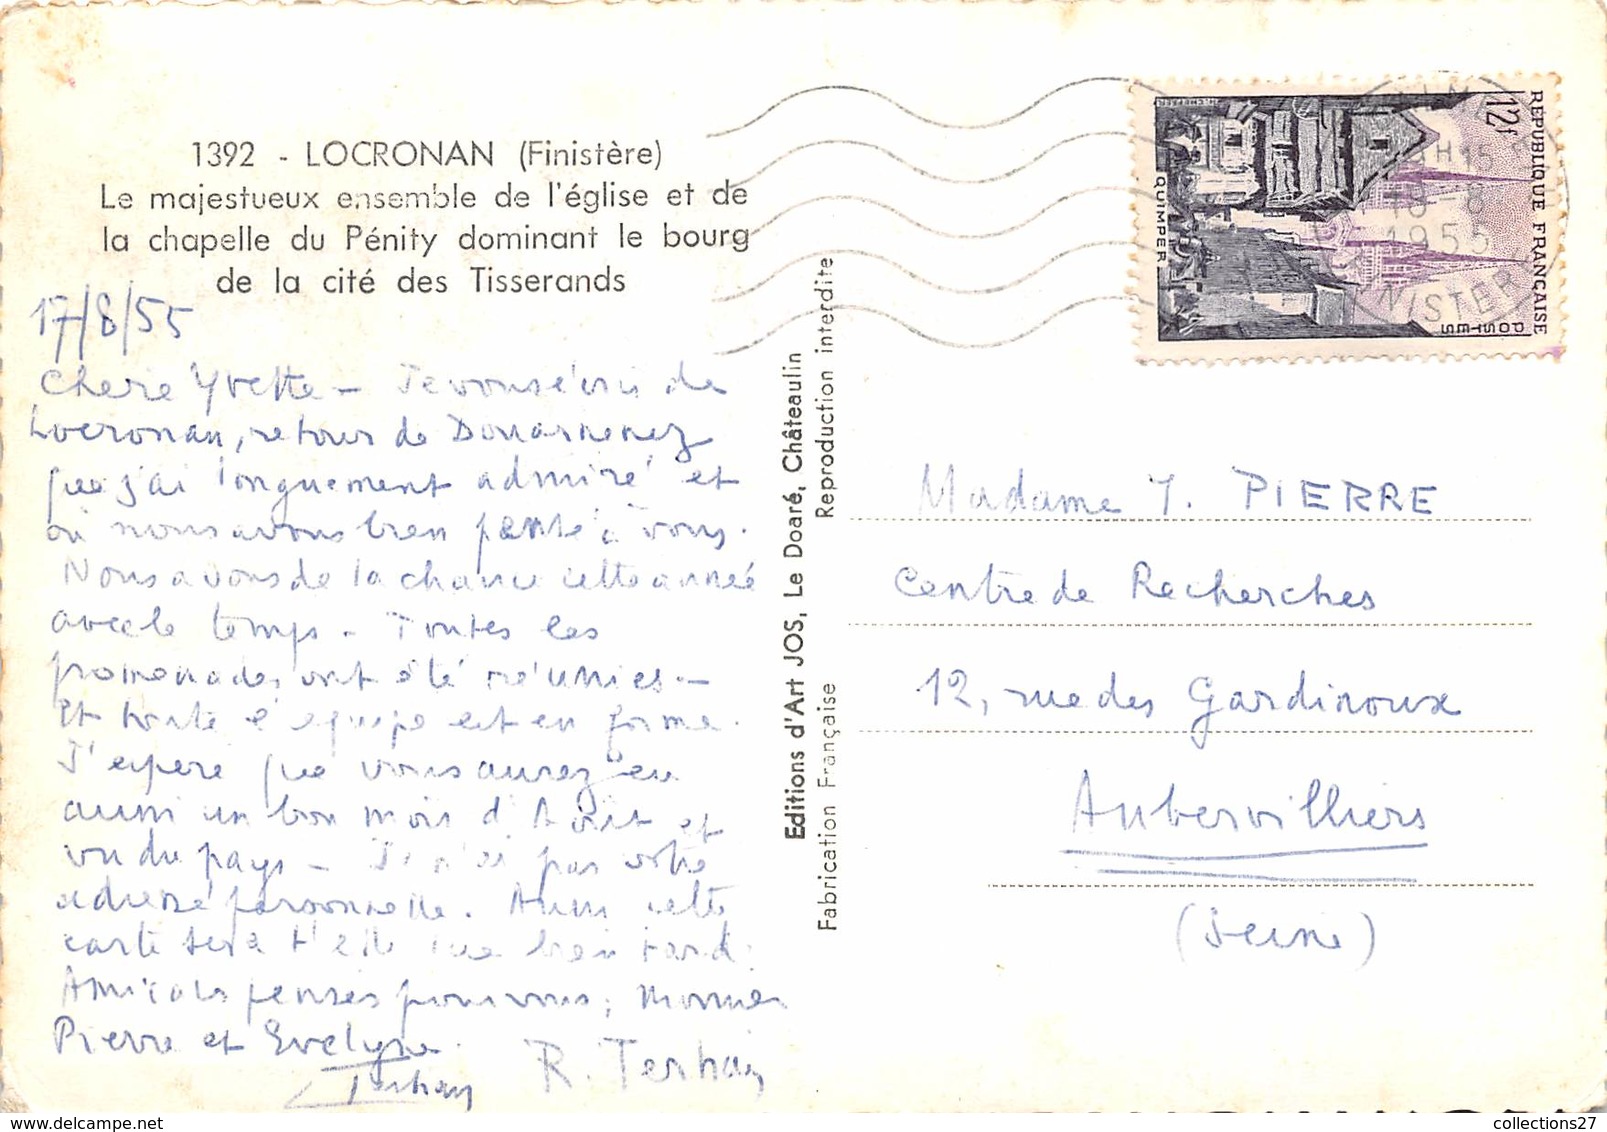 1392 - LOCRONAN (Finistère)
Le majestueux ensemble de l'église et de
la chapelle du Pénity dominant le bourg
de la cité des Tisserands
17/8/55
Chere Yvette - Je vous écris de
Locronan, retour de Douarnenez
que j'ai longuement admiré et
où nous avons bien pensé à vous.
Nous avons de la chance cette année
avec le temps - Toutes les
promenades ont été réunies -
Et toute l'equipe est en forme.
J'espere que vous aurez eu
aussi un bon mois d'Aout et
vu du pays - Je n'ai pas votre
adresse personnelle. Aussi cette
carte sera t'elle lue bien tard.
Amicales pensées pour vous, Monsieur
Pierre et Evelyne.
R. Terhay
Terhay
Editions d'Art JOS, Le Doaré, Châteaulin
Fabrication Française
Reproduction interdite
REPUBLIQUE FRANÇAISE
12f
POSTES
QUIMPER
18-8
1955
FINISTERE
Madame Y. PIERRE
Centre de Recherches
12, rue des Gardinoux
Aubervilliers
(Seine)
collections27